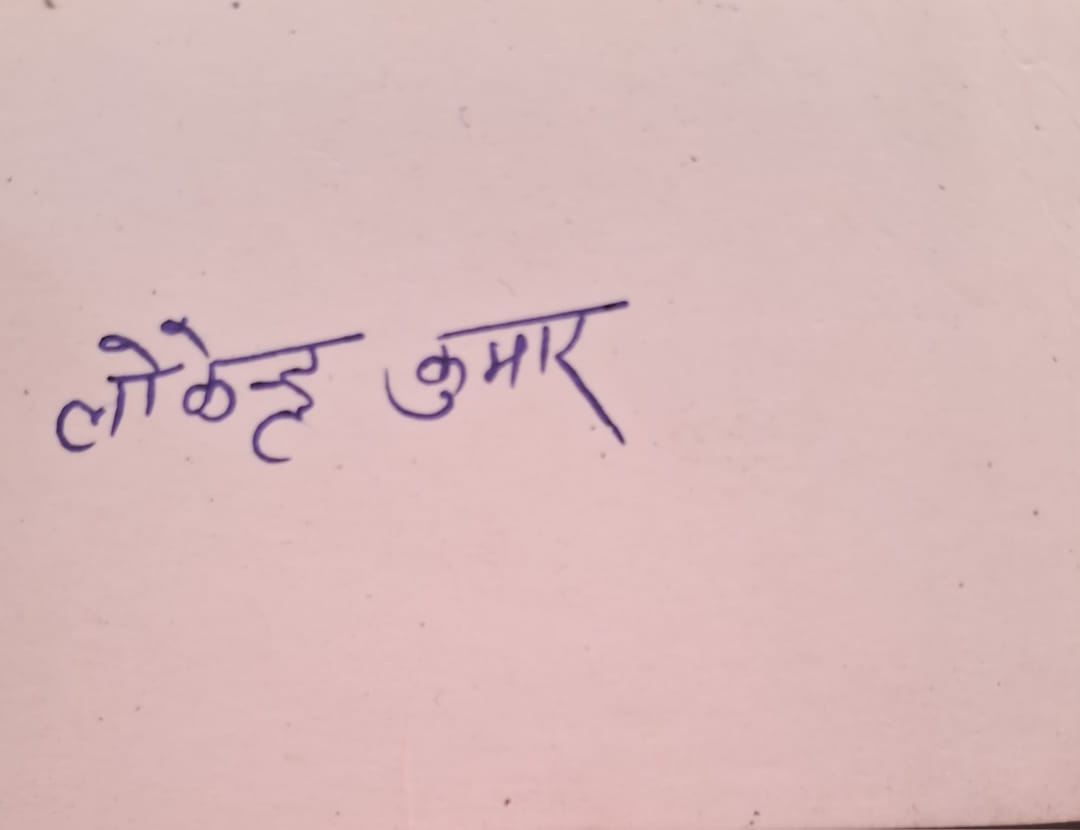 लोकेन्द्र कुमार